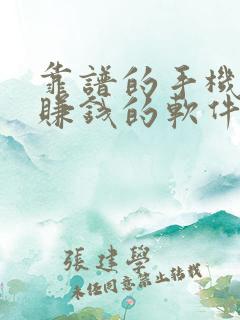 靠譜的手機
賺錢的軟件
張建學
未經同意禁止轉載